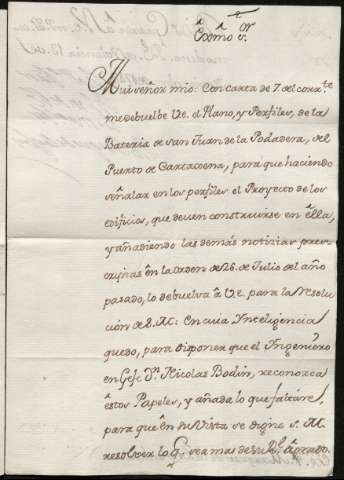 Exmo. Sr.
Mui señor mio: Con carta de 7 del corrte.
me debuelbe Ve. el Plano, y Perfiles, de la
Bateria de san Juan de la Podadera, del
Puerto de Cartagena, para que haciendo
señalar en los perfiles el Proyecto de los
edificios, que deven construirse en ella,
y añadiendo las demás noticias pres-
criptas en la orden de 26 de Julio del año
pasado, lo debuelva à Ve. para la resolu-
ción de S. M.: En cuia Ynteligencia
quedo, para disponer que el Ingeniero
en Gefe Dn. Nicolas Bodin, reconozca
éstos Papeles, y añada lo que faltáre,
para que en su vista se digne S. M.
resolver lo q. sea mas de su Rl. agrado.